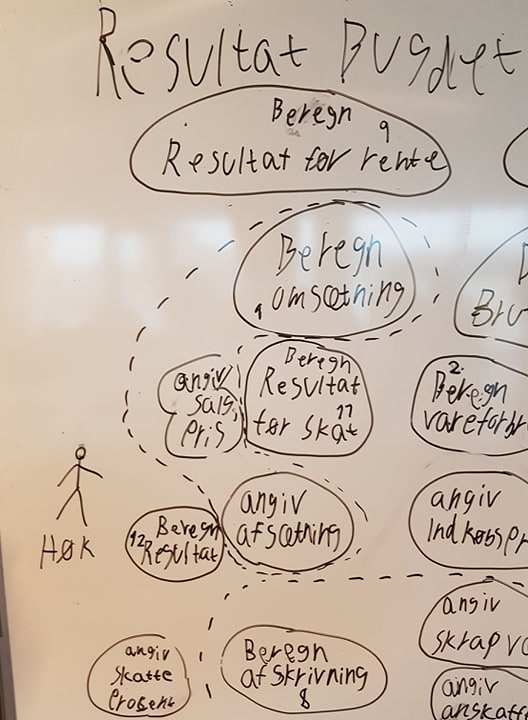 Resultat Busdet
Beregn
9
Resultat før rente
Beregn
1 omsætning
Bru
angiv
salgs
pris
Beregn
Resultat
før skat
11
2.
Beregn
vareforbr
HØK
12 Beregn
Resultat
angiv
afsætning
angiv
Indkøbspr
angiv
skrapv
angiv
skatte
Prosent
Beregn
afskrivning
8
angiv
anskaff